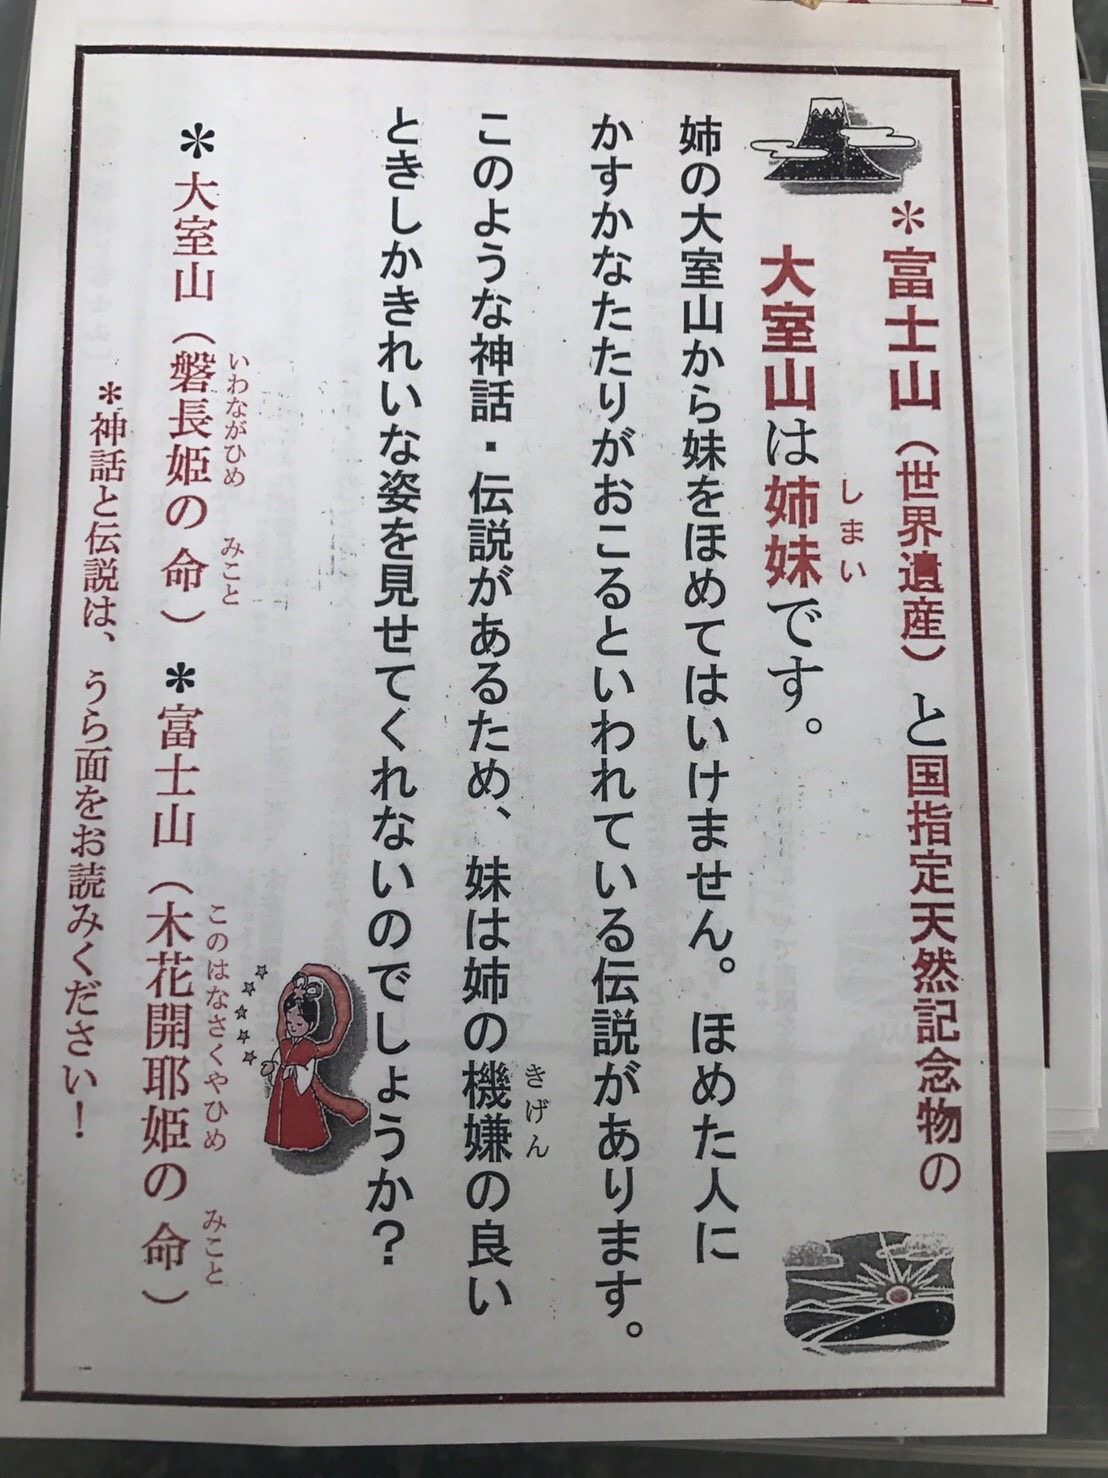 ＊富士山（世界遺産）と国指定天然記念物の
大室山は姉妹です。
しまい
姉の大室山から妹をほめてはいけません。ほめた人に
かすかなたたりがおこるといわれている伝説があります。
このような神話・伝説があるため、妹は姉の機嫌の良い
きげん
ときしかきれいな姿を見せてくれないのでしょうか？
＊大室山（磐長姫の命）＊富士山（木花開耶姫の命）
いわながひめ みこと このはなさくやひめ みこと
＊神話と伝説は、うら面をお読みください！